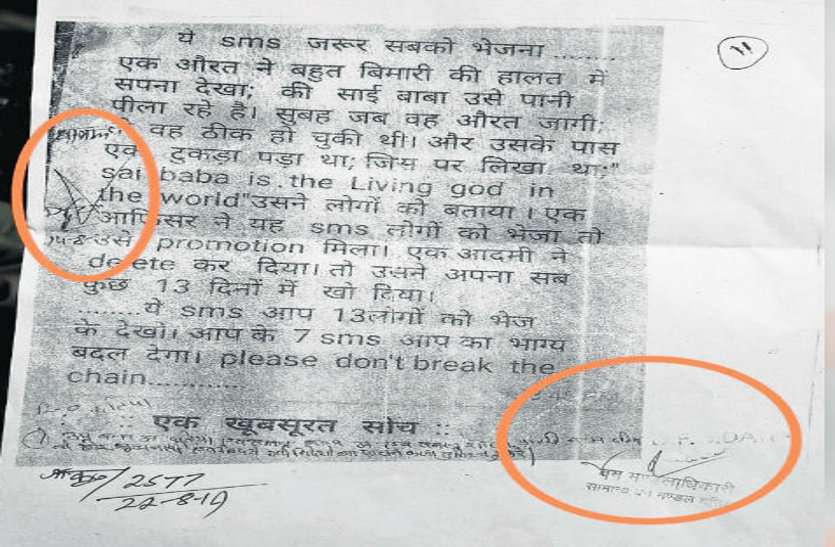 ११
ये sms जरूर सबको भेजना ........
एक औरत ने बहुत बिमारी की हालत में
सपना देखा; की साई बाबा उसे पानी
पीला रहे है। सुबह जब वह औरत जागी;
वह ठीक हो चुकी थी। और उसके पास
एक टुकड़ा पड़ा था; जिस पर लिखा था;"
sai baba is.the Living god in
the world"उसने लोगों को बताया। एक
आफिसर ने यह sms लोगों को भेजा तो
उसे promotion मिला। एक आदमी ने
delete कर दिया। तो उसने अपना सब
कुछ 13 दिनों में खो दिया।
........ये sms आप 13लोगों को भेज
के देखो। आप के 7 sms आप का भाग्य
बदल देगा। please don't break the
chain............
:: एक खूबसूरत सोच ::
2577
22-8-19
सामान्य वन मण्डल